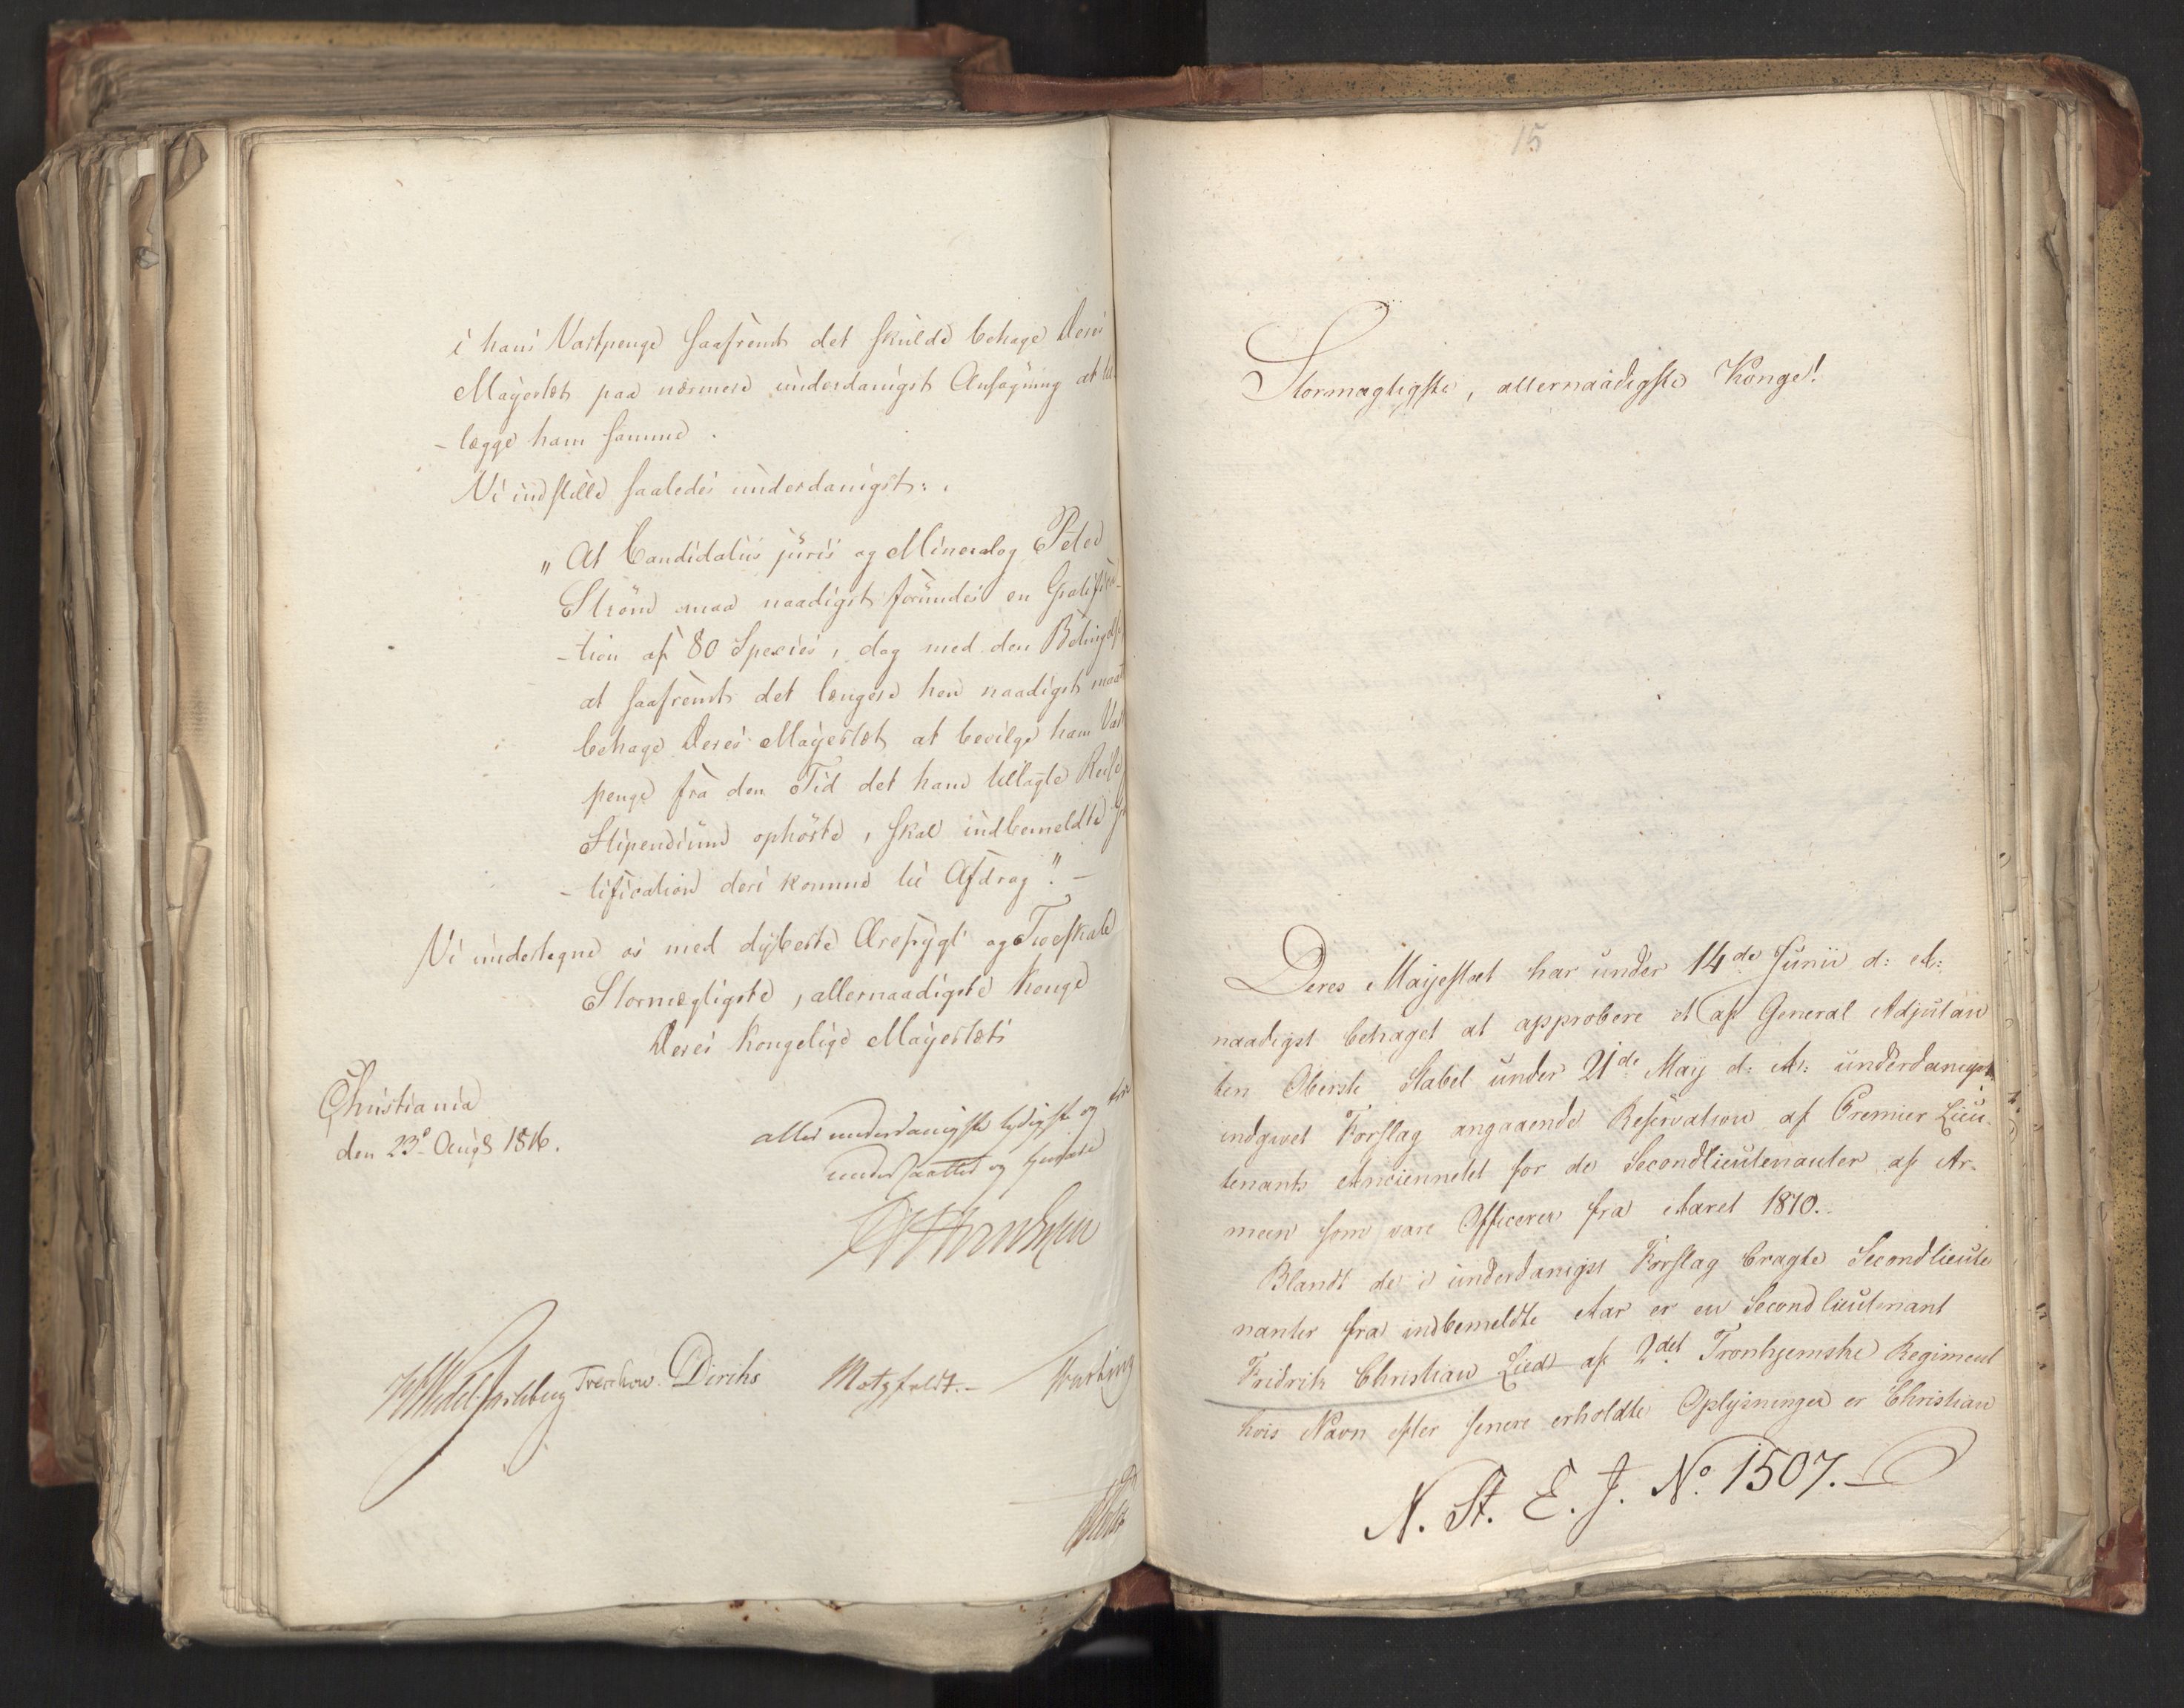 i hans Vartpenge saafremt det skulde behage Deres
Mayestæt paa nærmere underdanigst Ansøgning at til
- lægge ham samme .
Vi indstille saaledes underdanigst: .
" At Candidatus juris og Mineralog Peter
Strøm maa naadigst forundes en Gratifica-
- tion af 80 Species , dog med den Betingelse
at saafremt det længere hen naadigst maatte
behage Deres Mayestæt at bevilge ham Vart
penge fra den Tid det ham tillagte Reise
Stipendium ophørte , skal indbemeldte Gra
- tification deri komme til Afdrag ". -
Vi undertegne os med dybeste Ærefrygt og Troeskab
Stormægtigste , allernaadigste Konge
Deres Kongelige Mayestæts
Christiania
den 23de Aug. 1816.
allerunderdanigste lydigste og troe
undersaatter og tjenere
Wedel Jarlsberg Treschow Diriks Motzfeldt.-
15
Stormægtigste , allernaadigste Konge!
Deres Mayestæt har under 14de Junii d: A:
naadigst behaget at approbere et af General Adjutan
ten Oberste Stabel under 21de May d: A: underdanigst
indgivet Forslag angaaende Reservation af Premier Lieu-
tenants Anciennetet for de Secondlieutenanter af Ar-
meen som vare Officerer fra Aaret 1810.
Blandt de i underdanigst Forslag bragte Secondlieute
nanter fra indbemeldte Aar er en Second lieutenant
Fridrik Christian Lied af 2det Tronhjemske Regiment
hvis Navn efter senere erholdte Oplysninger er Christian
N. St. E. J. No. 1507.-